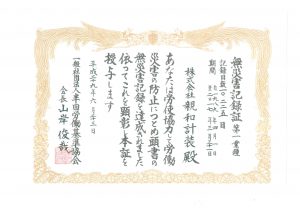 無災害記録証 第一種
株式会社 親和計装 殿
あなたは労使協力して労働
災害の防止につとめ頭書の
無災害記録を達成されました
依ってこれを顕彰し本証を
授与します
平成二十九年六月
一般社団法人半田労働基準協会
会長 山岸俊哉